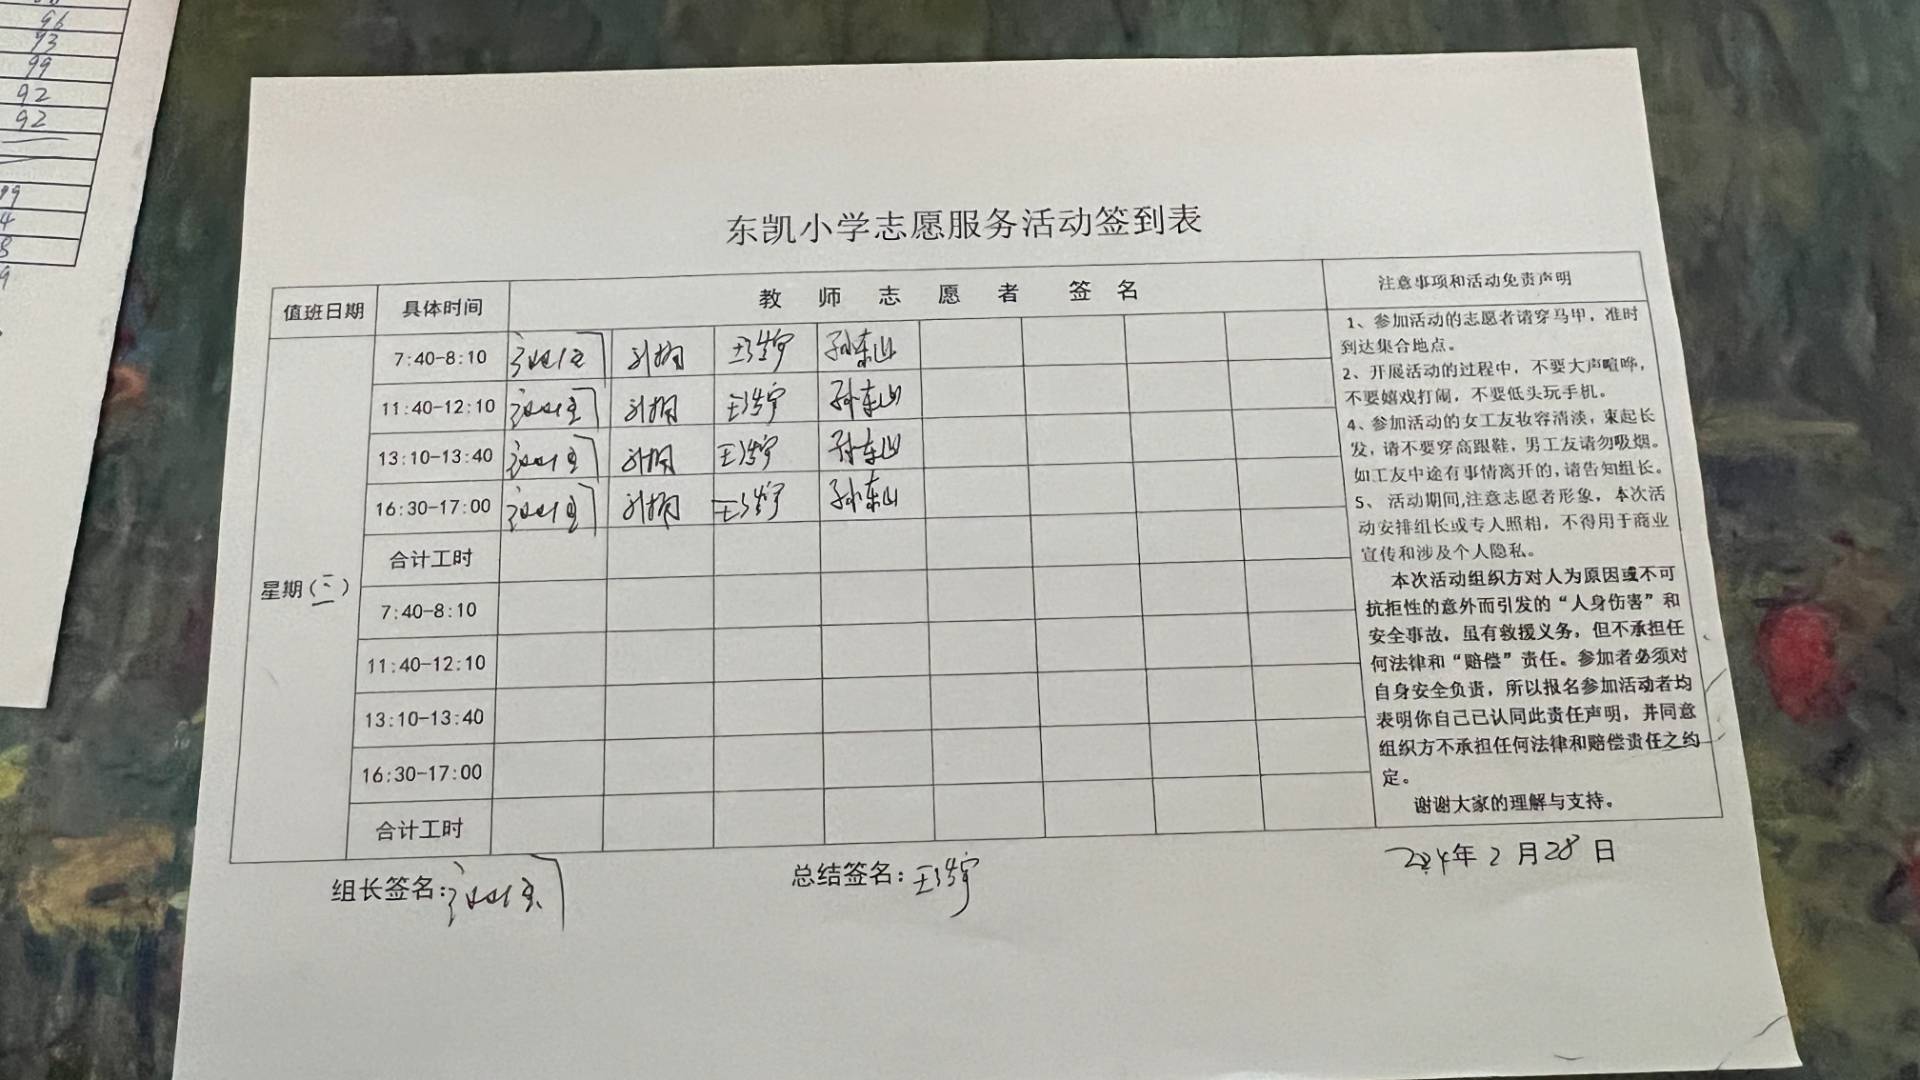 96
93
99
92
92
99
4
8
9
东凯小学志愿服务活动签到表
值班日期 具体时间 教师志愿者 签名 注意事项和活动免责声明
星期(三)
7:40-8:10 王浩宇 孙东山
11:40-12:10 王浩宇 孙东山
13:10-13:40 王浩宇 孙东山
16:30-17:00 王浩宇 孙东山
合计工时
7:40-8:10
11:40-12:10
13:10-13:40
16:30-17:00
合计工时
1、参加活动的志愿者请穿马甲，准时
到达集合地点。
2、开展活动的过程中，不要大声喧哗，
不要嬉戏打闹，不要低头玩手机。
4、参加活动的女工友妆容清淡，束起长
发，请不要穿高跟鞋，男工友请勿吸烟。
如工友中途有事情离开的，请告知组长。
5、 活动期间,注意志愿者形象，本次活
动安排组长或专人照相，不得用于商业
宣传和涉及个人隐私。
本次活动组织方对人为原因或不可
抗拒性的意外而引发的“人身伤害”和
安全事故，虽有救援义务，但不承担任
何法律和“赔偿”责任。参加者必须对
自身安全负责，所以报名参加活动者均
表明你自己已认同此责任声明，并同意
组织方不承担任何法律和赔偿责任之约
定。
谢谢大家的理解与支持。
组长签名:
总结签名：王浩宇
2024年2月28日